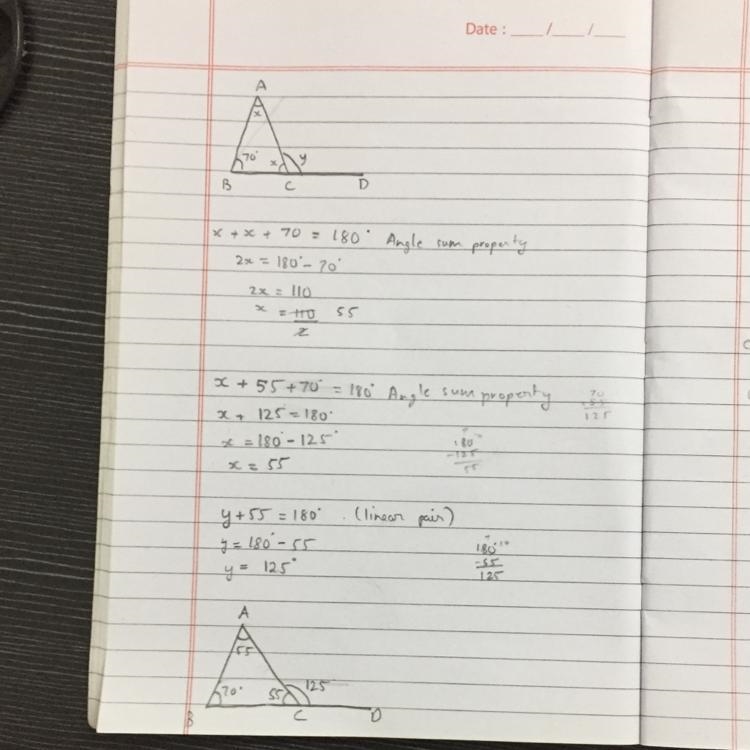 Date : ___/___/___
A
x
70°
x
y
B
C
D
x + x + 70 = 180° Angle sum property
2x = 180° - 70°
2x = 110
x = 110/2 55
x + 55 + 70° = 180° Angle sum property
70
+55
125
x + 125 = 180°
x = 180° - 125°
180
-125
55
x = 55
y + 55 = 180° . (linear pair)
y = 180° - 55
180
-55
125
y = 125°
A
55
70°
55
125
B
C
D